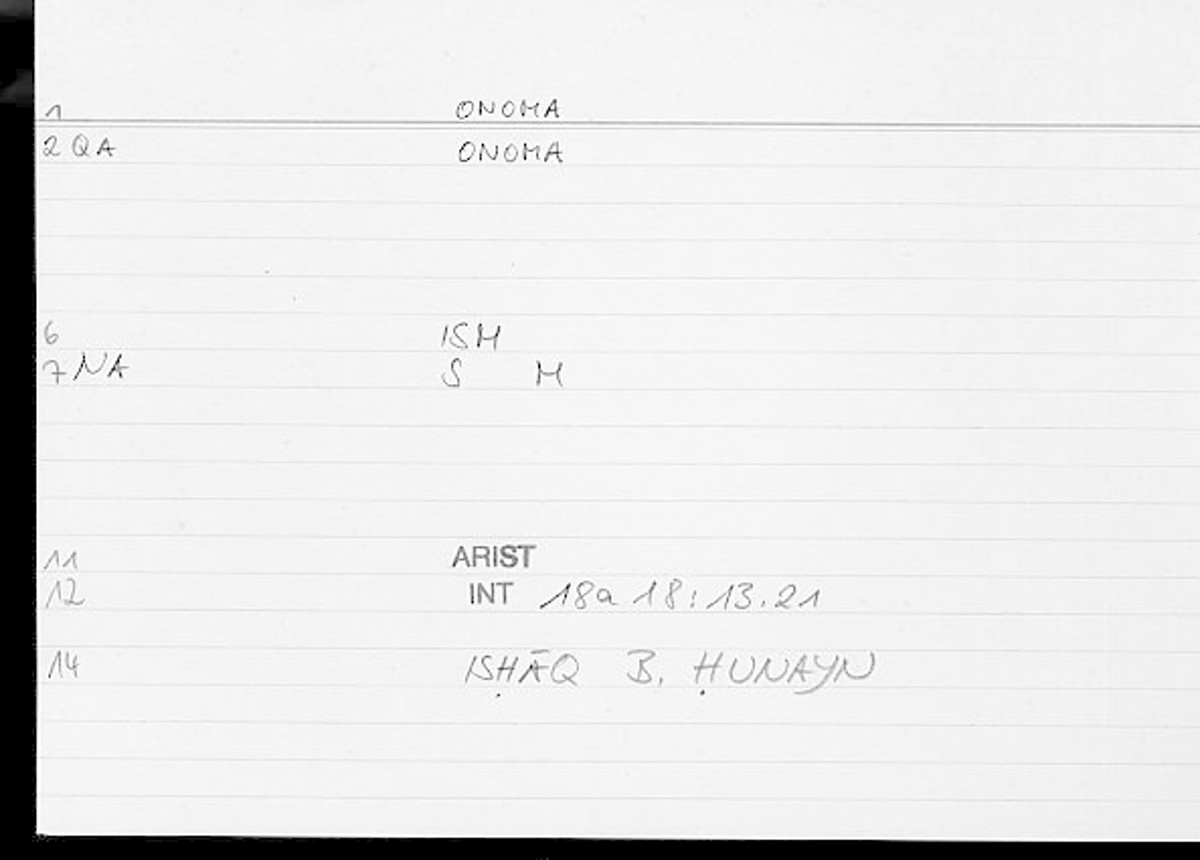 1 ONOMA
2 QA ONOMA
6 ISM
7 NA S M
11 ARIST
12 INT 18a 18:13.21
14 ISḤĀQ B. ḤUNAYN